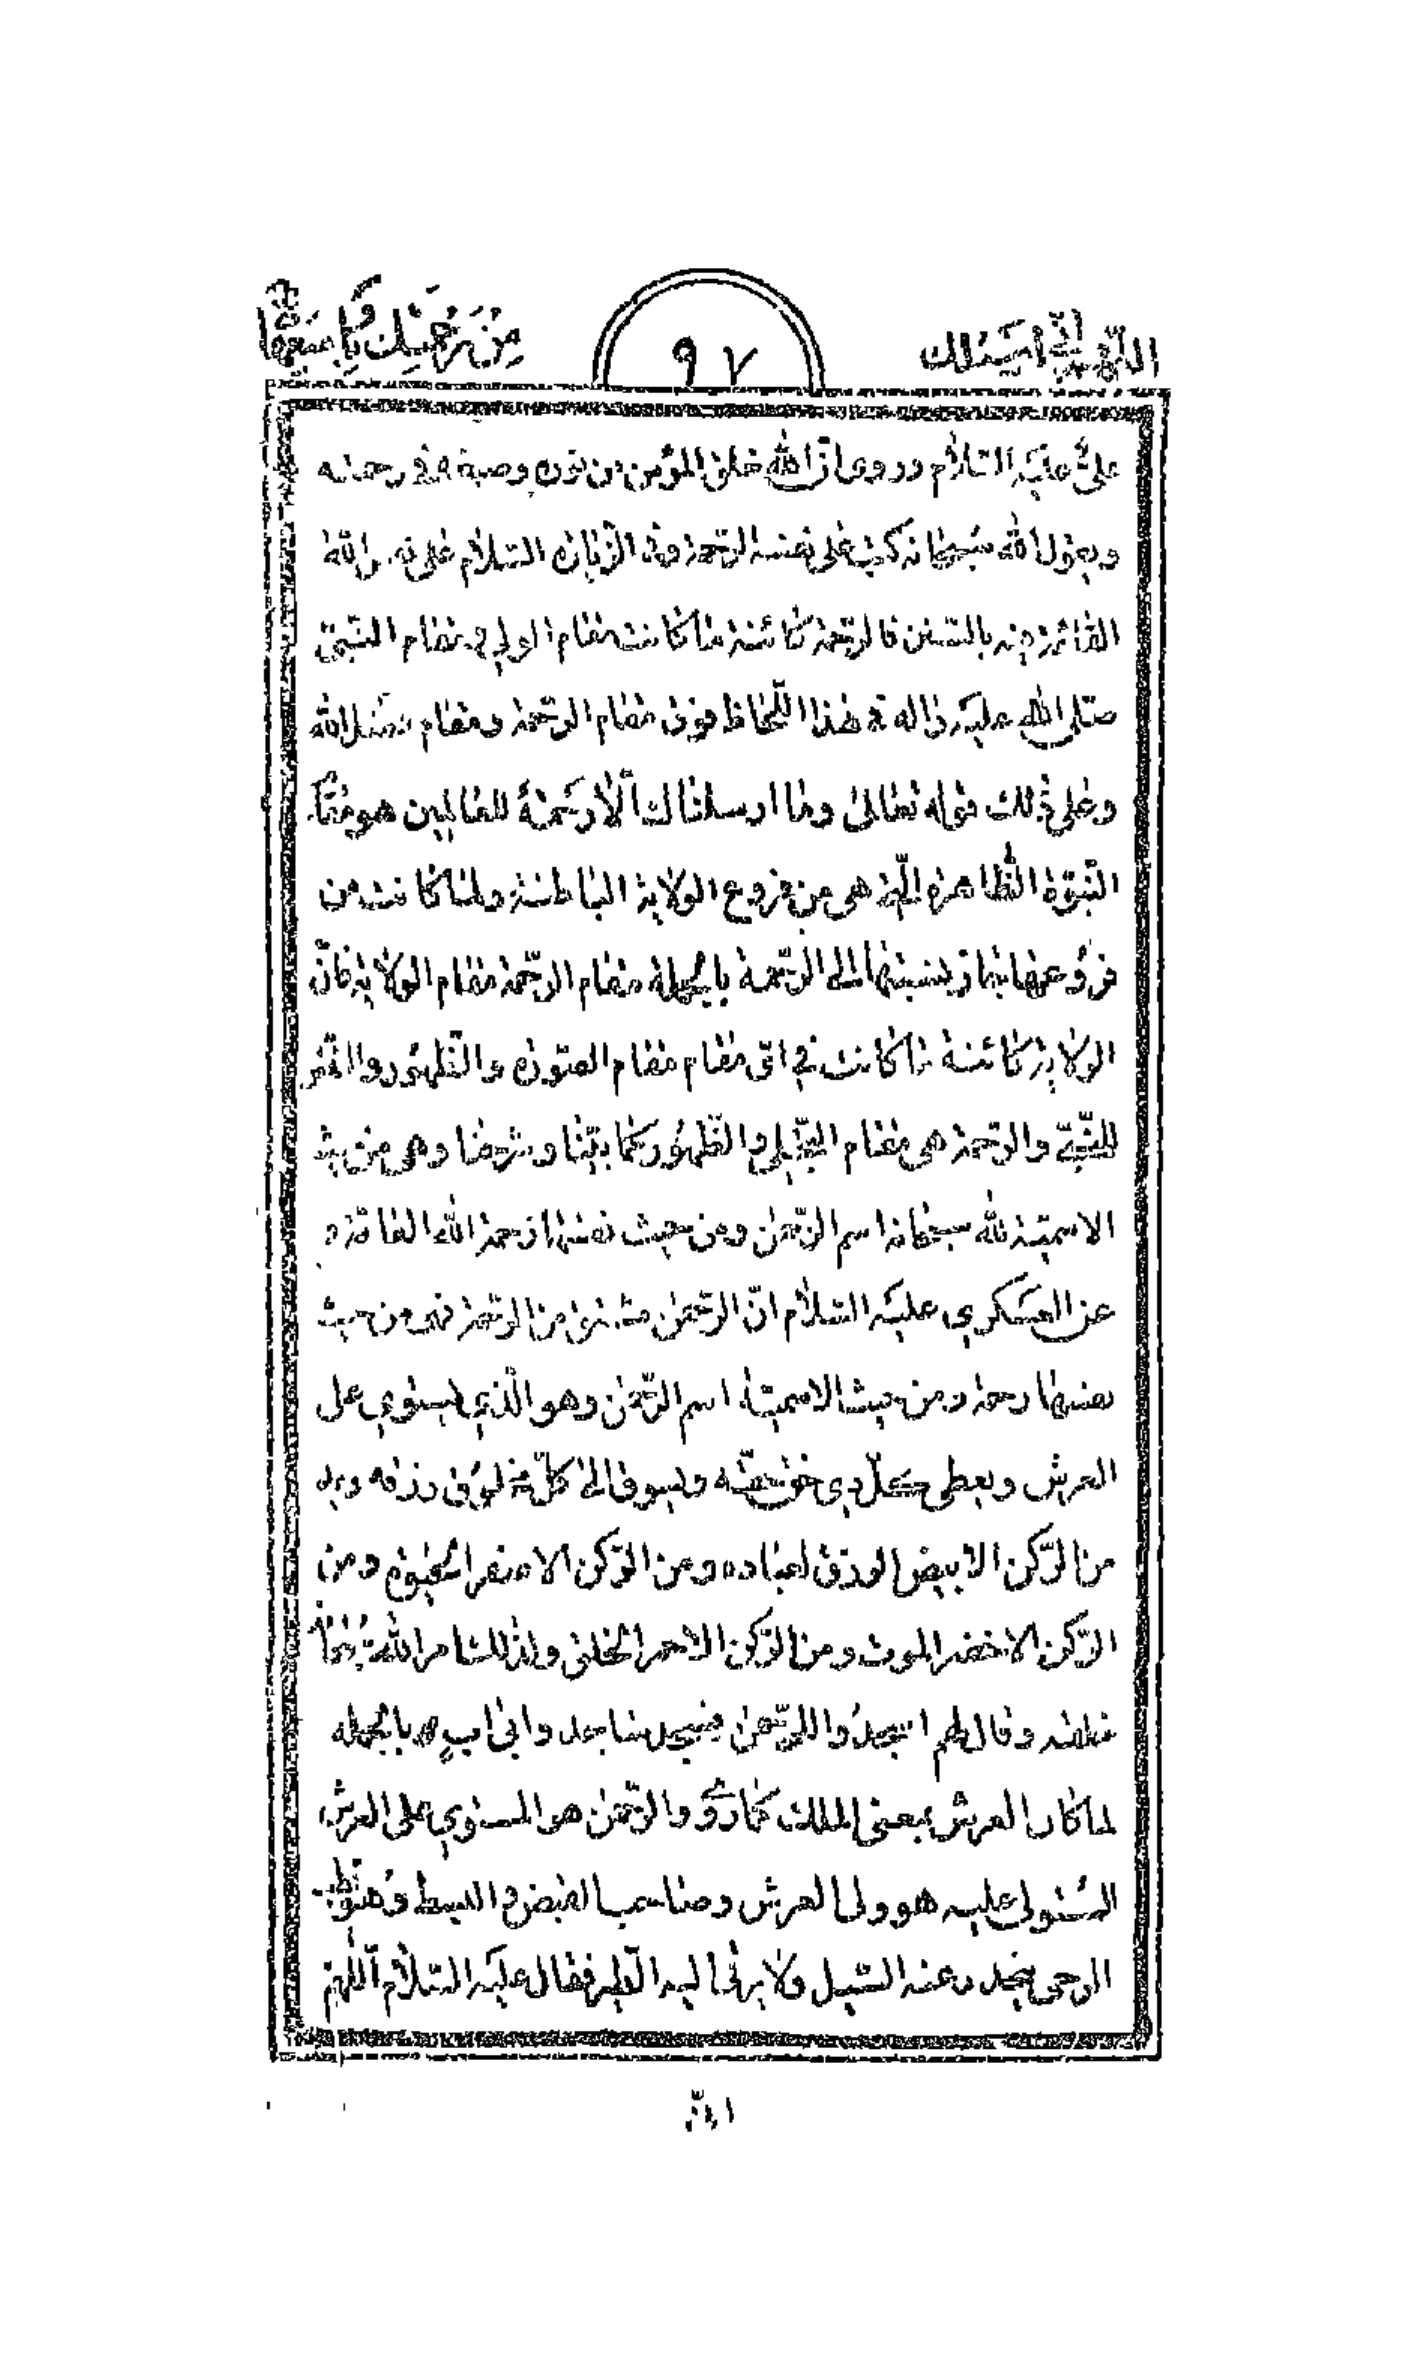 اللّهمّ إنّي أسئلك
٩٧
من رحمتك بأوسعها
عليّ عليه السّلام وروى انّ الله خلق المؤمن من نوره وصبغه في رحمته
ويقول الله سبحانه كتب على نفسه الرّحمة وفي الزّيارة السّلام على نفس الله
القائمة فيه بالسّنن فالرّحمة كائنة ما كانت مقام الولي ومقام النّبيّ
صلّى الله عليه واله في هذا اللّحاظ فوق مقام الرّحمة ومقام فضل الله
وعلى ذلك قوله تعالى وما ارسلناك الّا رحمة للعالمين هو مقام
النّبوّة الظّاهرة الّتي هي من فروع الولاية الباطنة ولمّا كانت من
فروعها جاز نسبتها الى الرّحمة بالجملة مقام الرّحمة مقام الولاية فانّ
الولاية كائنة ما كانت في ايّ مقام مقام الصّورة والظّهور والتّعيّن
للنّبيّ والرّحمة هي مقام التّجلّي والظّهور كما بيّنّا وشرحنا وهي من حيث
الاسميّة لله سبحانه اسم الرّحمن ومن حيث نفسها رحمة الله الفائقة و
عن العسكري عليه السّلام انّ الرّحمن مشتق من الرّحمة فهي من حيث
نفسها رحمة ومن حيث الاسميّة اسم الرّحمن وهو الّذي استوى على
العرش ويعطي كلّ ذي حقّ حقّه ويسوق الى كلّ مخلوق رزقه وبه
من الرّكن الابيض الرزق لعباده ومن الرّكن الاصفر الحيوة ومن
الرّكن الاخضر الموت ومن الرّكن الاحمر الخلق ولذلك امر الله سبحانه
خلقه وقال لهم اسجدوا للرّحمن فسجد ساجد وابى اب بالجملة
لما كان العرش بمعنى الملك كما روي والرّحمن هو المستوي على العرش
المستولي عليه هو ولي العرش وصاحب القبض والبسط وهو قطب
الرحى ينحدر عنه السّيل ولا يرقى اليه الطّير فقال عليه السّلام اللّهمّ
انّي